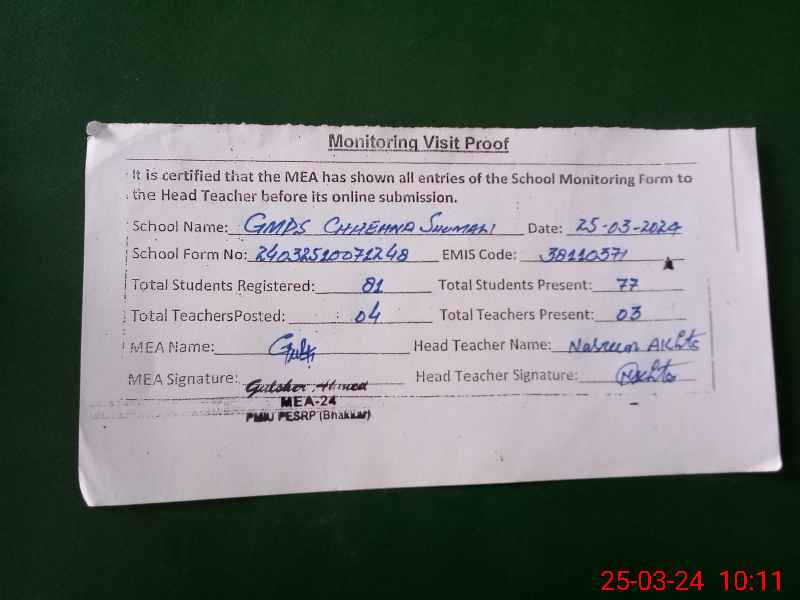 Monitoring Visit Proof
It is certified that the MEA has shown all entries of the School Monitoring Form to
the Head Teacher before its online submission.
School Name: GMPS CHHEHNA SHUMALI Date: 25-03-2024
School Form No: 24032510071248 EMIS Code: 38110371
Total Students Registered: 81 Total Students Present: 77
Total TeachersPosted: 04 Total Teachers Present: 03
MEA Name: Head Teacher Name: Nasreem Akhtr
MEA Signature: Gulsher Ahmed Head Teacher Signature:
MEA-24
PMIU PESRP (Bhakkar)
25-03-24 10:11